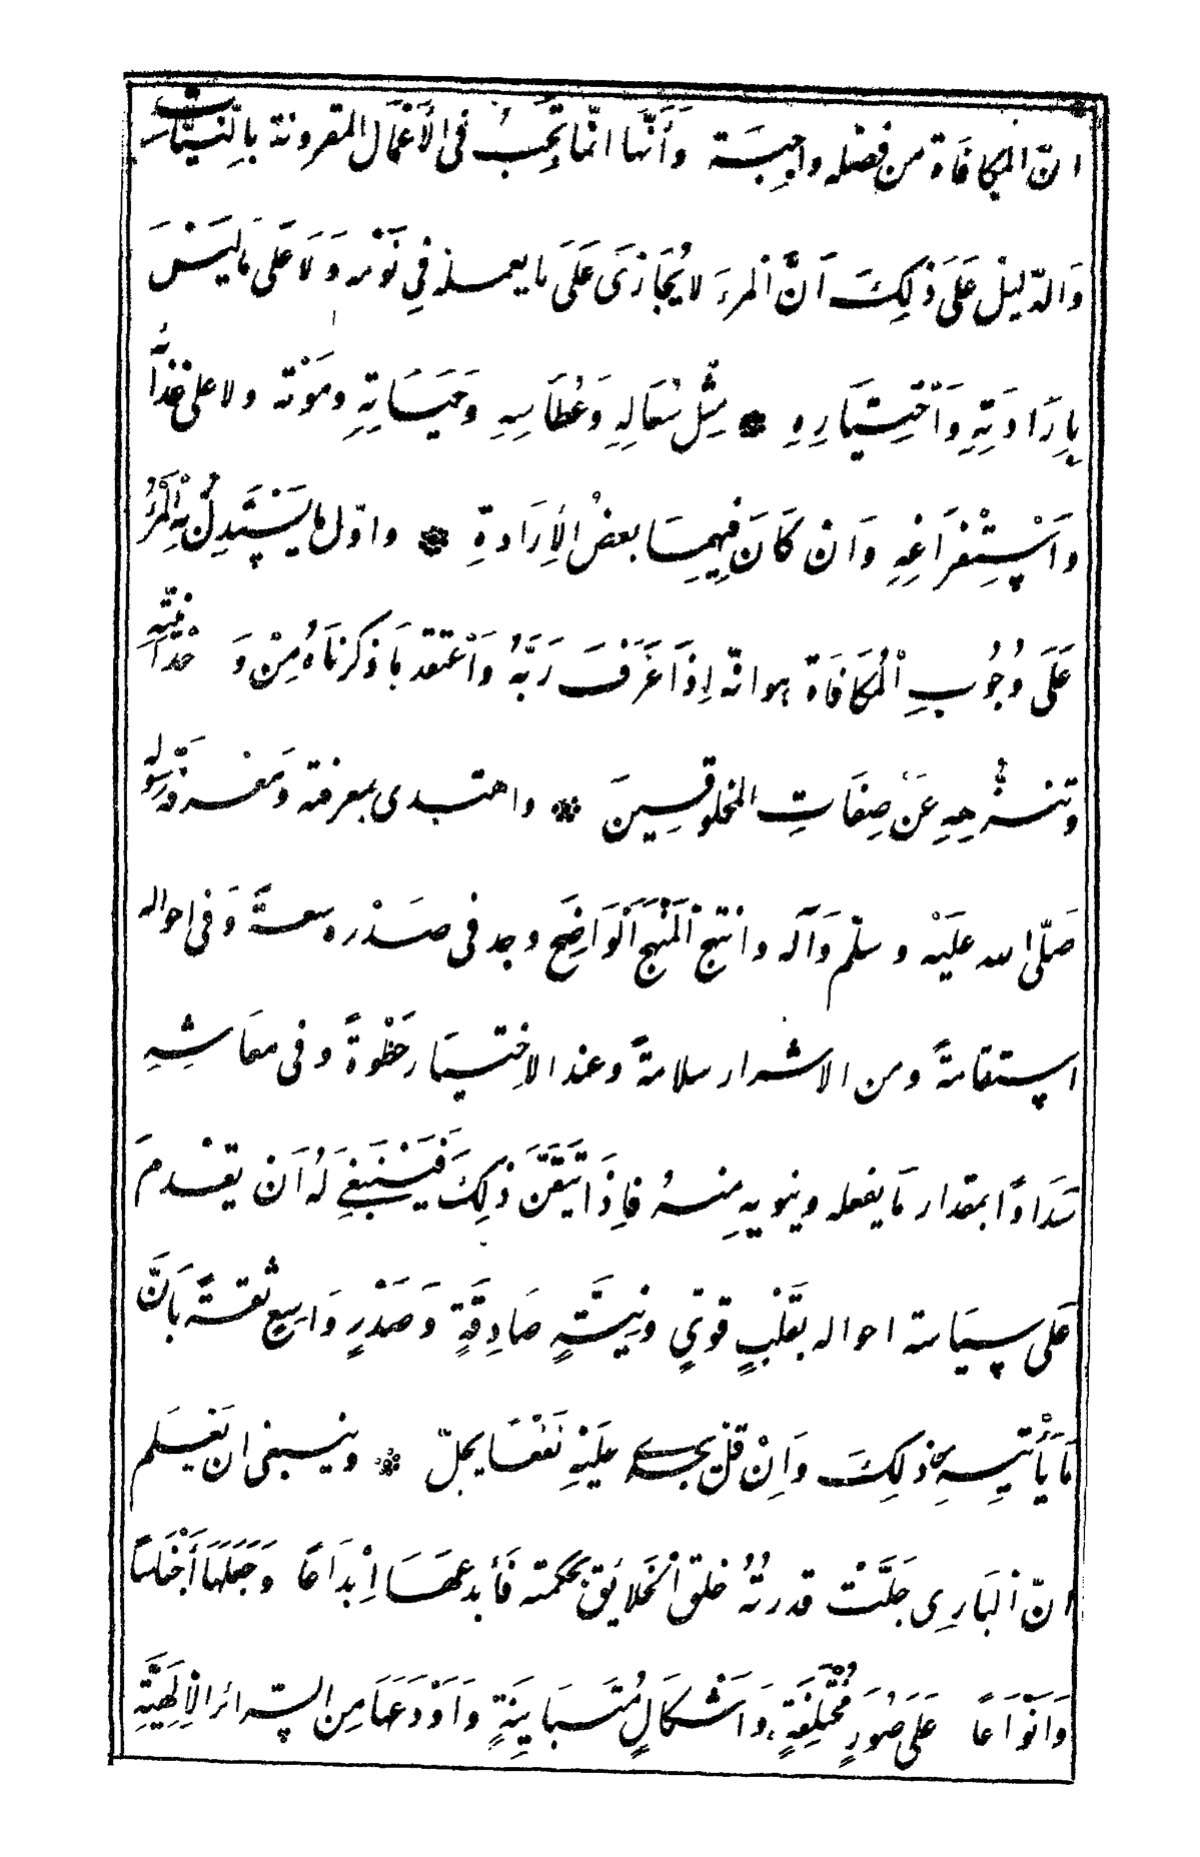 انّ المكافاة من فضله واجِبَة وَأنّها انّما تجِبُ فى الأعْمَال المقرونة بِالنّيّات
وَالدّليل عَلَى ذٰلِكَ اَنَّ المرءَ لا يُجَازَى عَلَى ما يعمله فِي نَوْمه وَلَا عَلى مَا ليَسْ
بِارَادَتِهِ وَاخْتِيَارِهِ ❋ مِثْل سُعَالِهِ وَعُطَاسِهِ وَحَيَاتِهِ وَمَوْته ولا على غذائه
وَاسْتِفْرَاغِهِ وَان كَانَ فِيهِمَا بعضُ الأِرَادةِ ❋ واوّل ما يَسْتَدِلُّ بِهِ الْمَرْءُ
عَلَى وُجُوبِ الْمُكَافَاة هوانّه اِذَا عَرَفَ رَبَّهُ وَاعْتقد مَا ذكرناهُ مِنْ وَحْدَانيَّتِهِ
وتنزهِهِ عَنْ صِفَاتِ المخلوقِينَ ❋ واهتدى بمعرفته وَمَعْرفة رَسُوله
صَلّى الله عَلَيْه وسلّم وَآله وانتهج الْمَنْهَج الْوَاضِحَ وجد فى صَدْره سعةً وَفى احواله
استقامةً ومن الاشرار سلامةً وعند الاخْتيَار حَظْوةً وفى معَاشِهِ
سَدَادًا بمقدار مَا يفعله وينويه مِنهُ فاِذَا تَيَقَّنَ ذٰلِكَ فَيَنْبَغِي لَهُ اَن يقْدمَ
عَلى سيَاسة احواله بقَلْبٍ قوىٍّ ونِيَّةٍ صَادِقَةٍ وَصَدْرٍ وَاسِعٍ ثقةً بَانَّ
مَا يَأتيهِ من ذلِكَ وَاِنْ قلَّ يجدى عليْهِ نَفْعًا يجلّ ❋ وينبغى ان يَعْلم
انّ البَارِى جَلَّتْ قدرتُهُ خلق الْخَلايق بحكمته فَأبدعهَا اِبْدَاعًا وَجَعَلَهَا أَجْنَاسًا
وَانْوَاعًا عَلَى صُوَرٍ مُخْتَلِفَةٍ وَاشْكَالٍ مُتَبَايِنَةٍ وَاَوْدَعَهَا مِن السّرائر الاِلٰهِيَّةِ